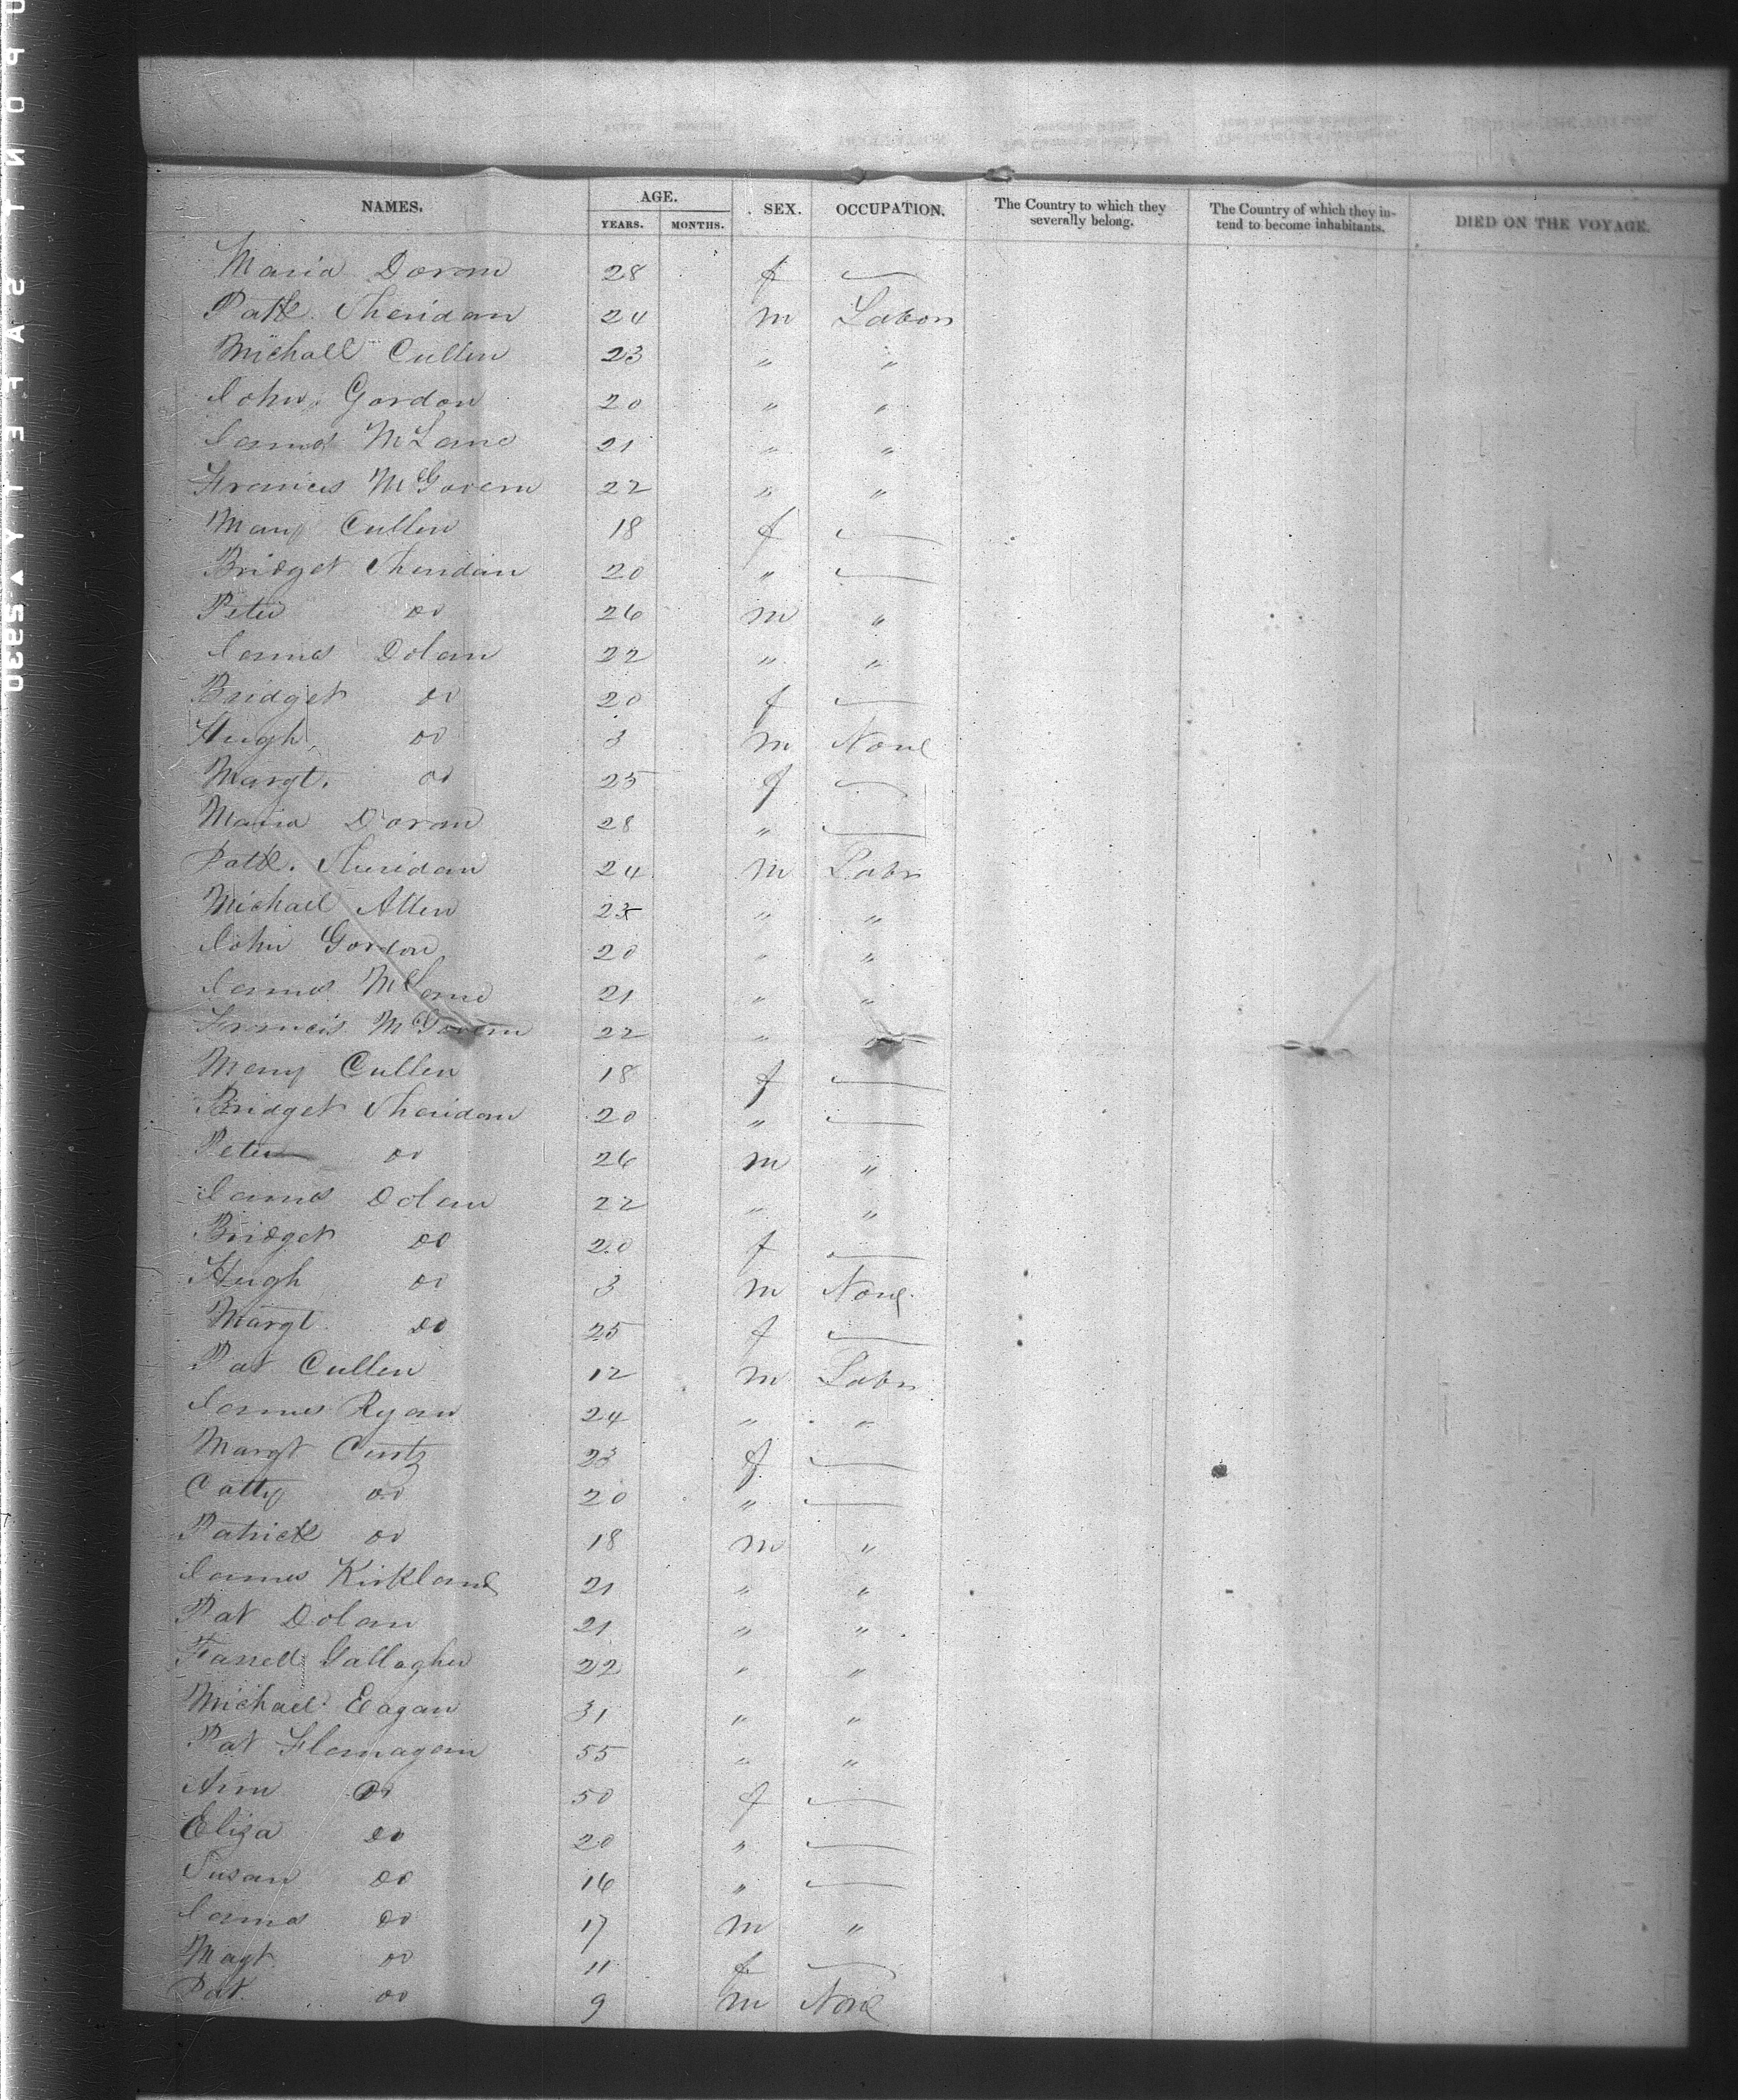 NAMES. AGE. SEX. OCCUPATION. The Country to which they severally belong. The Country of which they intend to become inhabitants. DIED ON THE VOYAGE.
YEARS. MONTHS.
Maria Doran 28 f —
Patk. Sheridan 24 m Labor
Michall Cullen 23 " "
John Gordon 20 " "
James McLane 21 " "
Francis McGovern 22 " "
Mary Cullen 18 f —
Bridget Sheridan 20 " —
Peter do 26 m "
James Dolan 22 " "
Bridget do 20 f —
Hugh do 3 m None
Margt. do 25 f —
Maria Doran 28 " —
Patk. Sheridan 24 m Labr
Michael Allen 23 " "
John Gordon 20 " "
James McLane 21 " "
Francis McGovern 22 " "
Mary Cullen 18 f —
Bridget Sheridan 20 " —
Peter do 26 m "
James Dolan 22 " "
Bridget do 20 f —
Hugh do 3 m None
Margt do 25 f —
Pat Cullen 12 m Labr
James Ryan 24 " "
Margt 23 f —
Catty do 20 " —
Patrick do 18 m "
James Kirkland 21 " "
Pat Dolan 21 " "
Farrell Gallagher 22 " "
Michael Eagan 31 " "
Pat Flanagan 55 " "
Ann do 50 f —
Eliza do 20 " —
Susan do 16 " —
James do 17 m "
Magt do 11 f —
Pat do 9 m None